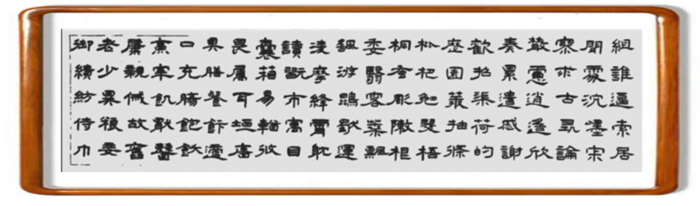 組誰逼索居
閒處沉默寂
寥求古尋論
散慮逍遙欣
奏累遣慼謝
歡招渠荷的
歷園莽抽條
枇杷晚翠梧
桐蚤彫陳根
委翳落葉飄
颻游鵾獨運
凌摩絳霄耽
讀翫市寓目
囊箱易輶攸
畏屬耳垣牆
具膳餐飯適
口充腸飽飫
烹宰飢厭糟
糠親戚故舊
老少異糧妾
御績紡侍巾